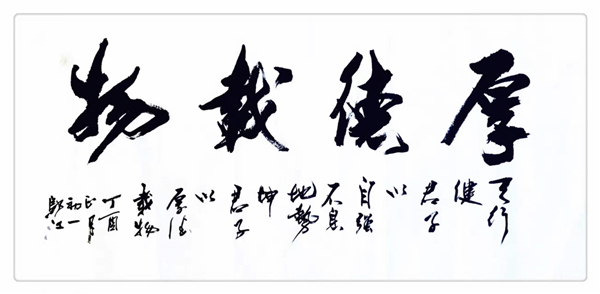 厚德載物
天行
健
君子
以
自強
不息
地勢
坤
君子
以
厚德
載物
丁酉
正月
初一